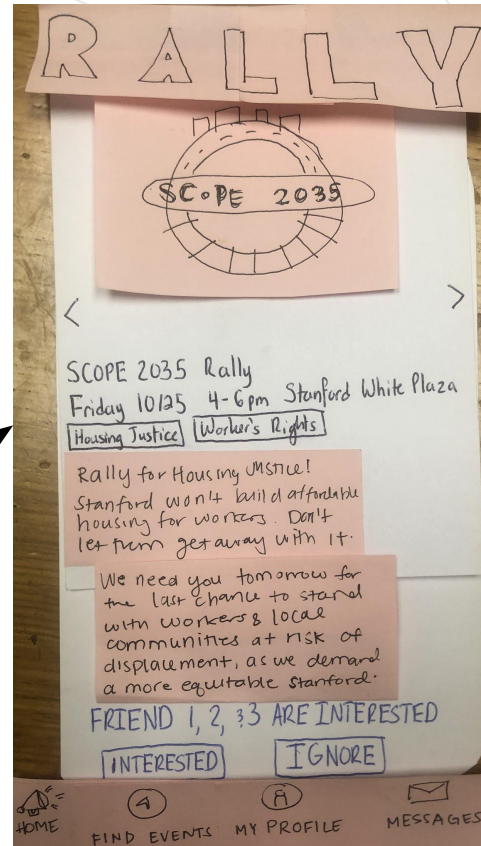 RALLY
SCOPE 2035
< >
SCOPE 2035 Rally
Friday 10/25 4-6pm Stanford White Plaza
Housing Justice Worker's Rights
Rally for Housing Justice!
Stanford won't build affordable
housing for workers. Don't
let them get away with it.
We need you tomorrow for
the last chance to stand
with workers & local
communities at risk of
displacement, as we demand
a more equitable Stanford.
FRIEND 1, 2, &3 ARE INTERESTED
INTERESTED IGNORE
HOME FIND EVENTS MY PROFILE MESSAGES